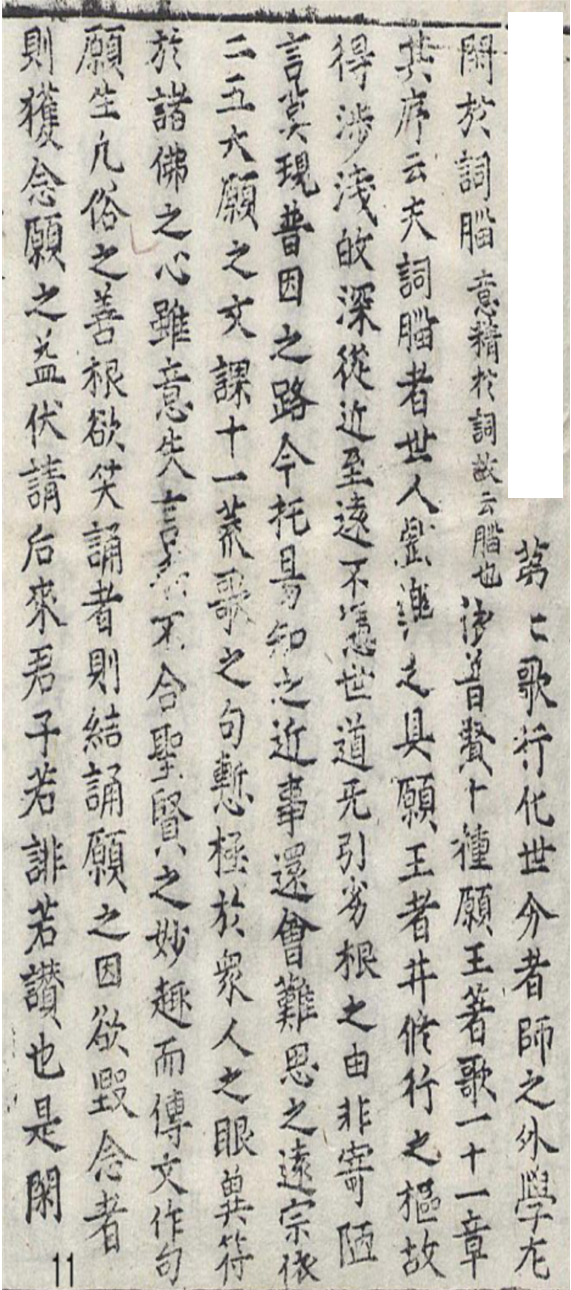 第七歌行化世分者師之外學尤
閑於詞腦意精於詞故云腦也依普賢十種願王著歌一十一章
其序云夫詞腦者世人戱樂之具願王者井修行之樞故
得涉淺皈深從近至遠不憑世道无引劣根之由非寄陋
言莫現普因之路今托易知之近事還會難思之遠宗依
二五大願之文課十一荒歌之句慙極於衆人之眼兾符
於諸佛之心雖意失言乖不合聖賢之妙趣而傳文作句
願生凡俗之善根欲笑誦者則結誦願之因欲毀念者
則獲念願之益伏請后來君子若誹若讚也是閑
11